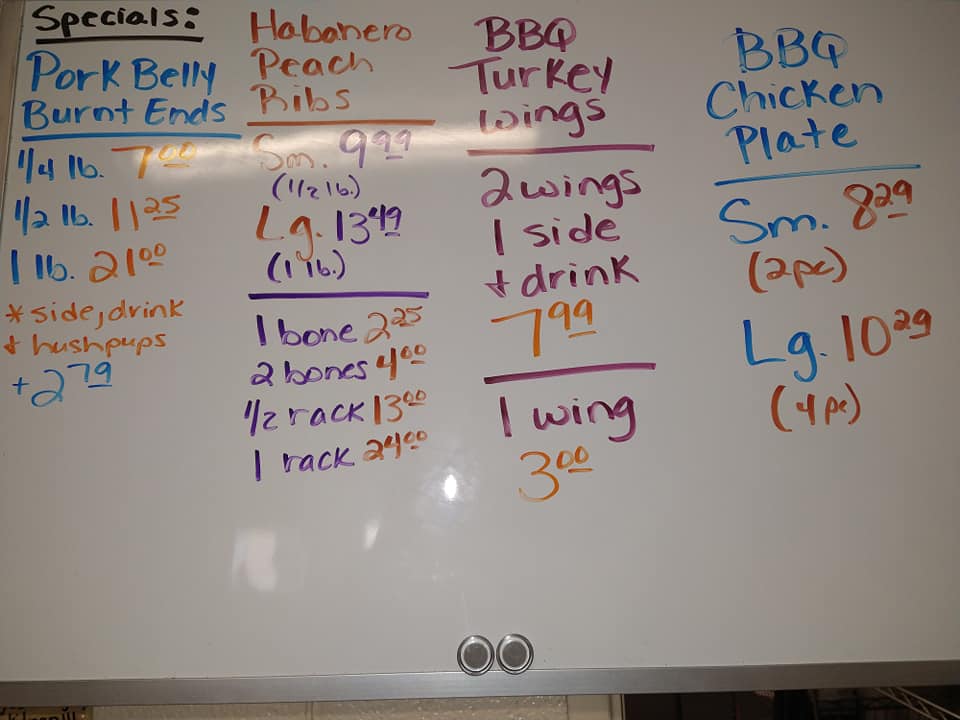 Specials:
Pork Belly
Burnt Ends
1/4 lb. 7.00
1/2 lb. 11.25
1 lb. 21.00
* side, drink
+ hushpups
+2.79
Habanero
Peach
Ribs
Sm. 9.99
(1/2 lb.)
Lg. 13.49
(1 lb.)
1 bone 2.25
2 bones 4.00
1/2 rack 13.00
1 rack 24.00
BBQ
Turkey
Wings
2 wings
1 side
+ drink
7.99
1 wing
3.00
BBQ
Chicken
Plate
Sm. 8.29
(2pc)
Lg. 10.29
(4pc)